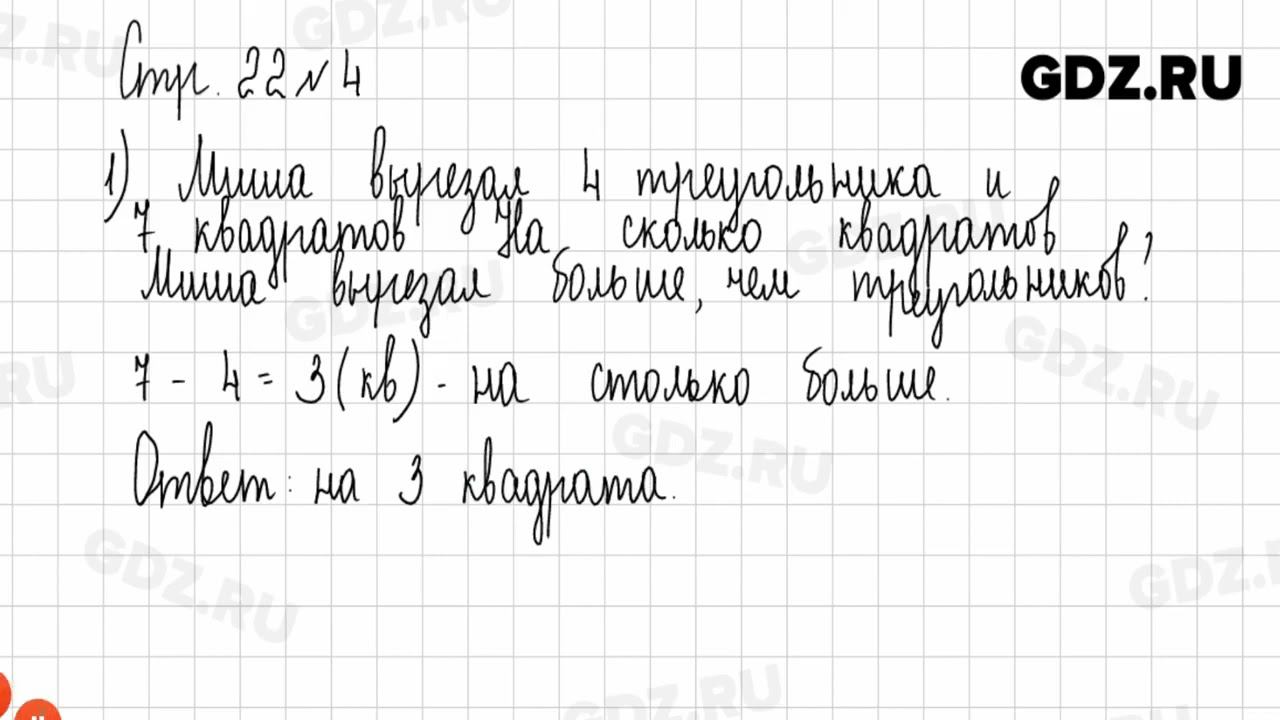 Стр. 22 № 4
GDZ.RU
1) Миша вырезал 4 треугольника и
7 квадратов На сколько квадратов
Миша вырезал больше, чем треугольников?
7 - 4 = 3 (кв) - на столько больше.
Ответ: на 3 квадрата.